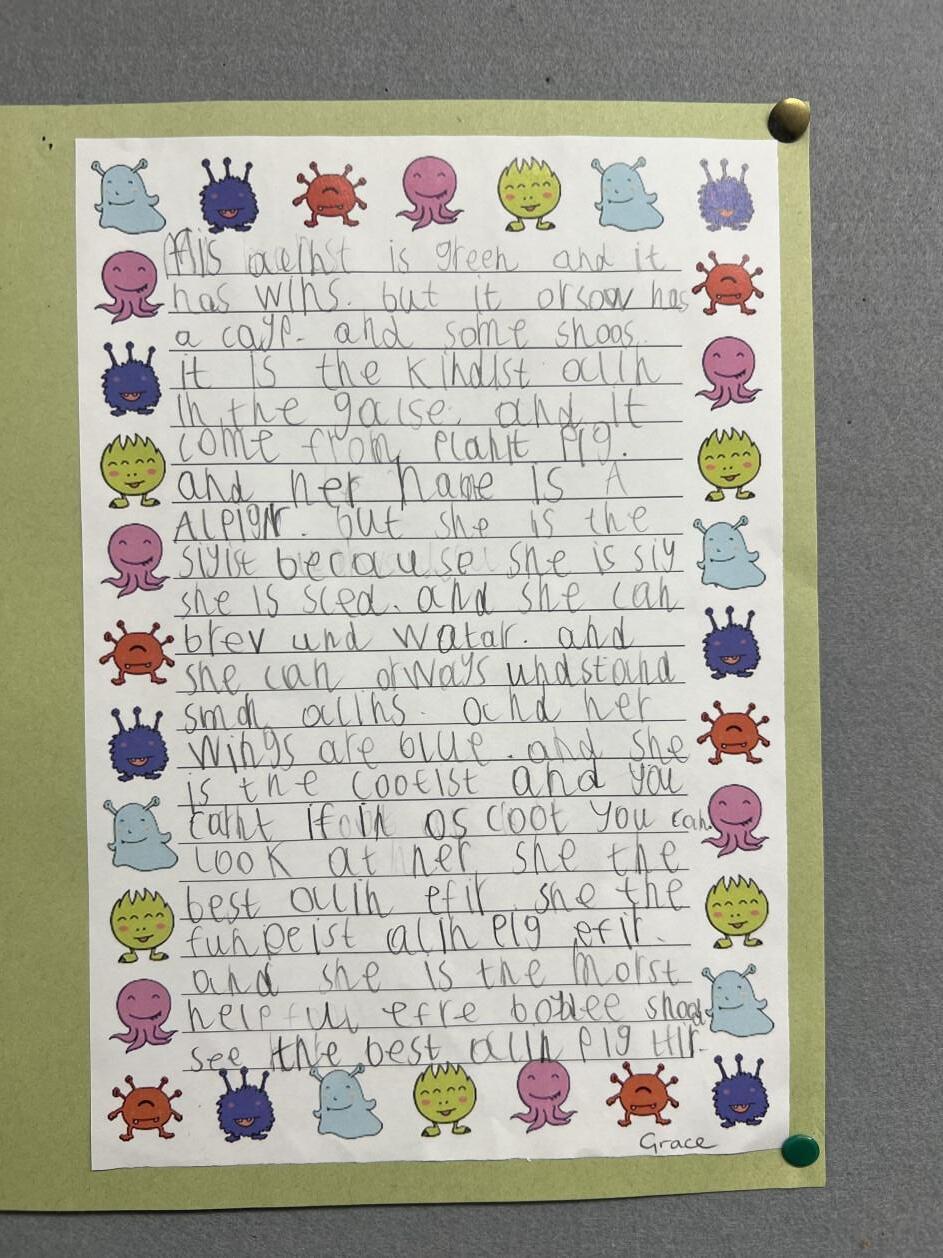 this aelhst is green and it
has wins. but it orsow has
a cayp. and some shoos.
it is the kindist alin
in the galse. and it
come from planit Pig.
and her name is A
ALPIGN. but she is the
siylst because she is siy
she is sced. and she can
brev und watar. and
she can orways undstand
alins. and her
wings are blue. and she
is the cootist and you
carnt as coot you can.
look at her she the
best alin efir she the
funneist alin pig efir.
and she is the morst
helpful efre shood
see the best alin pig
Grace